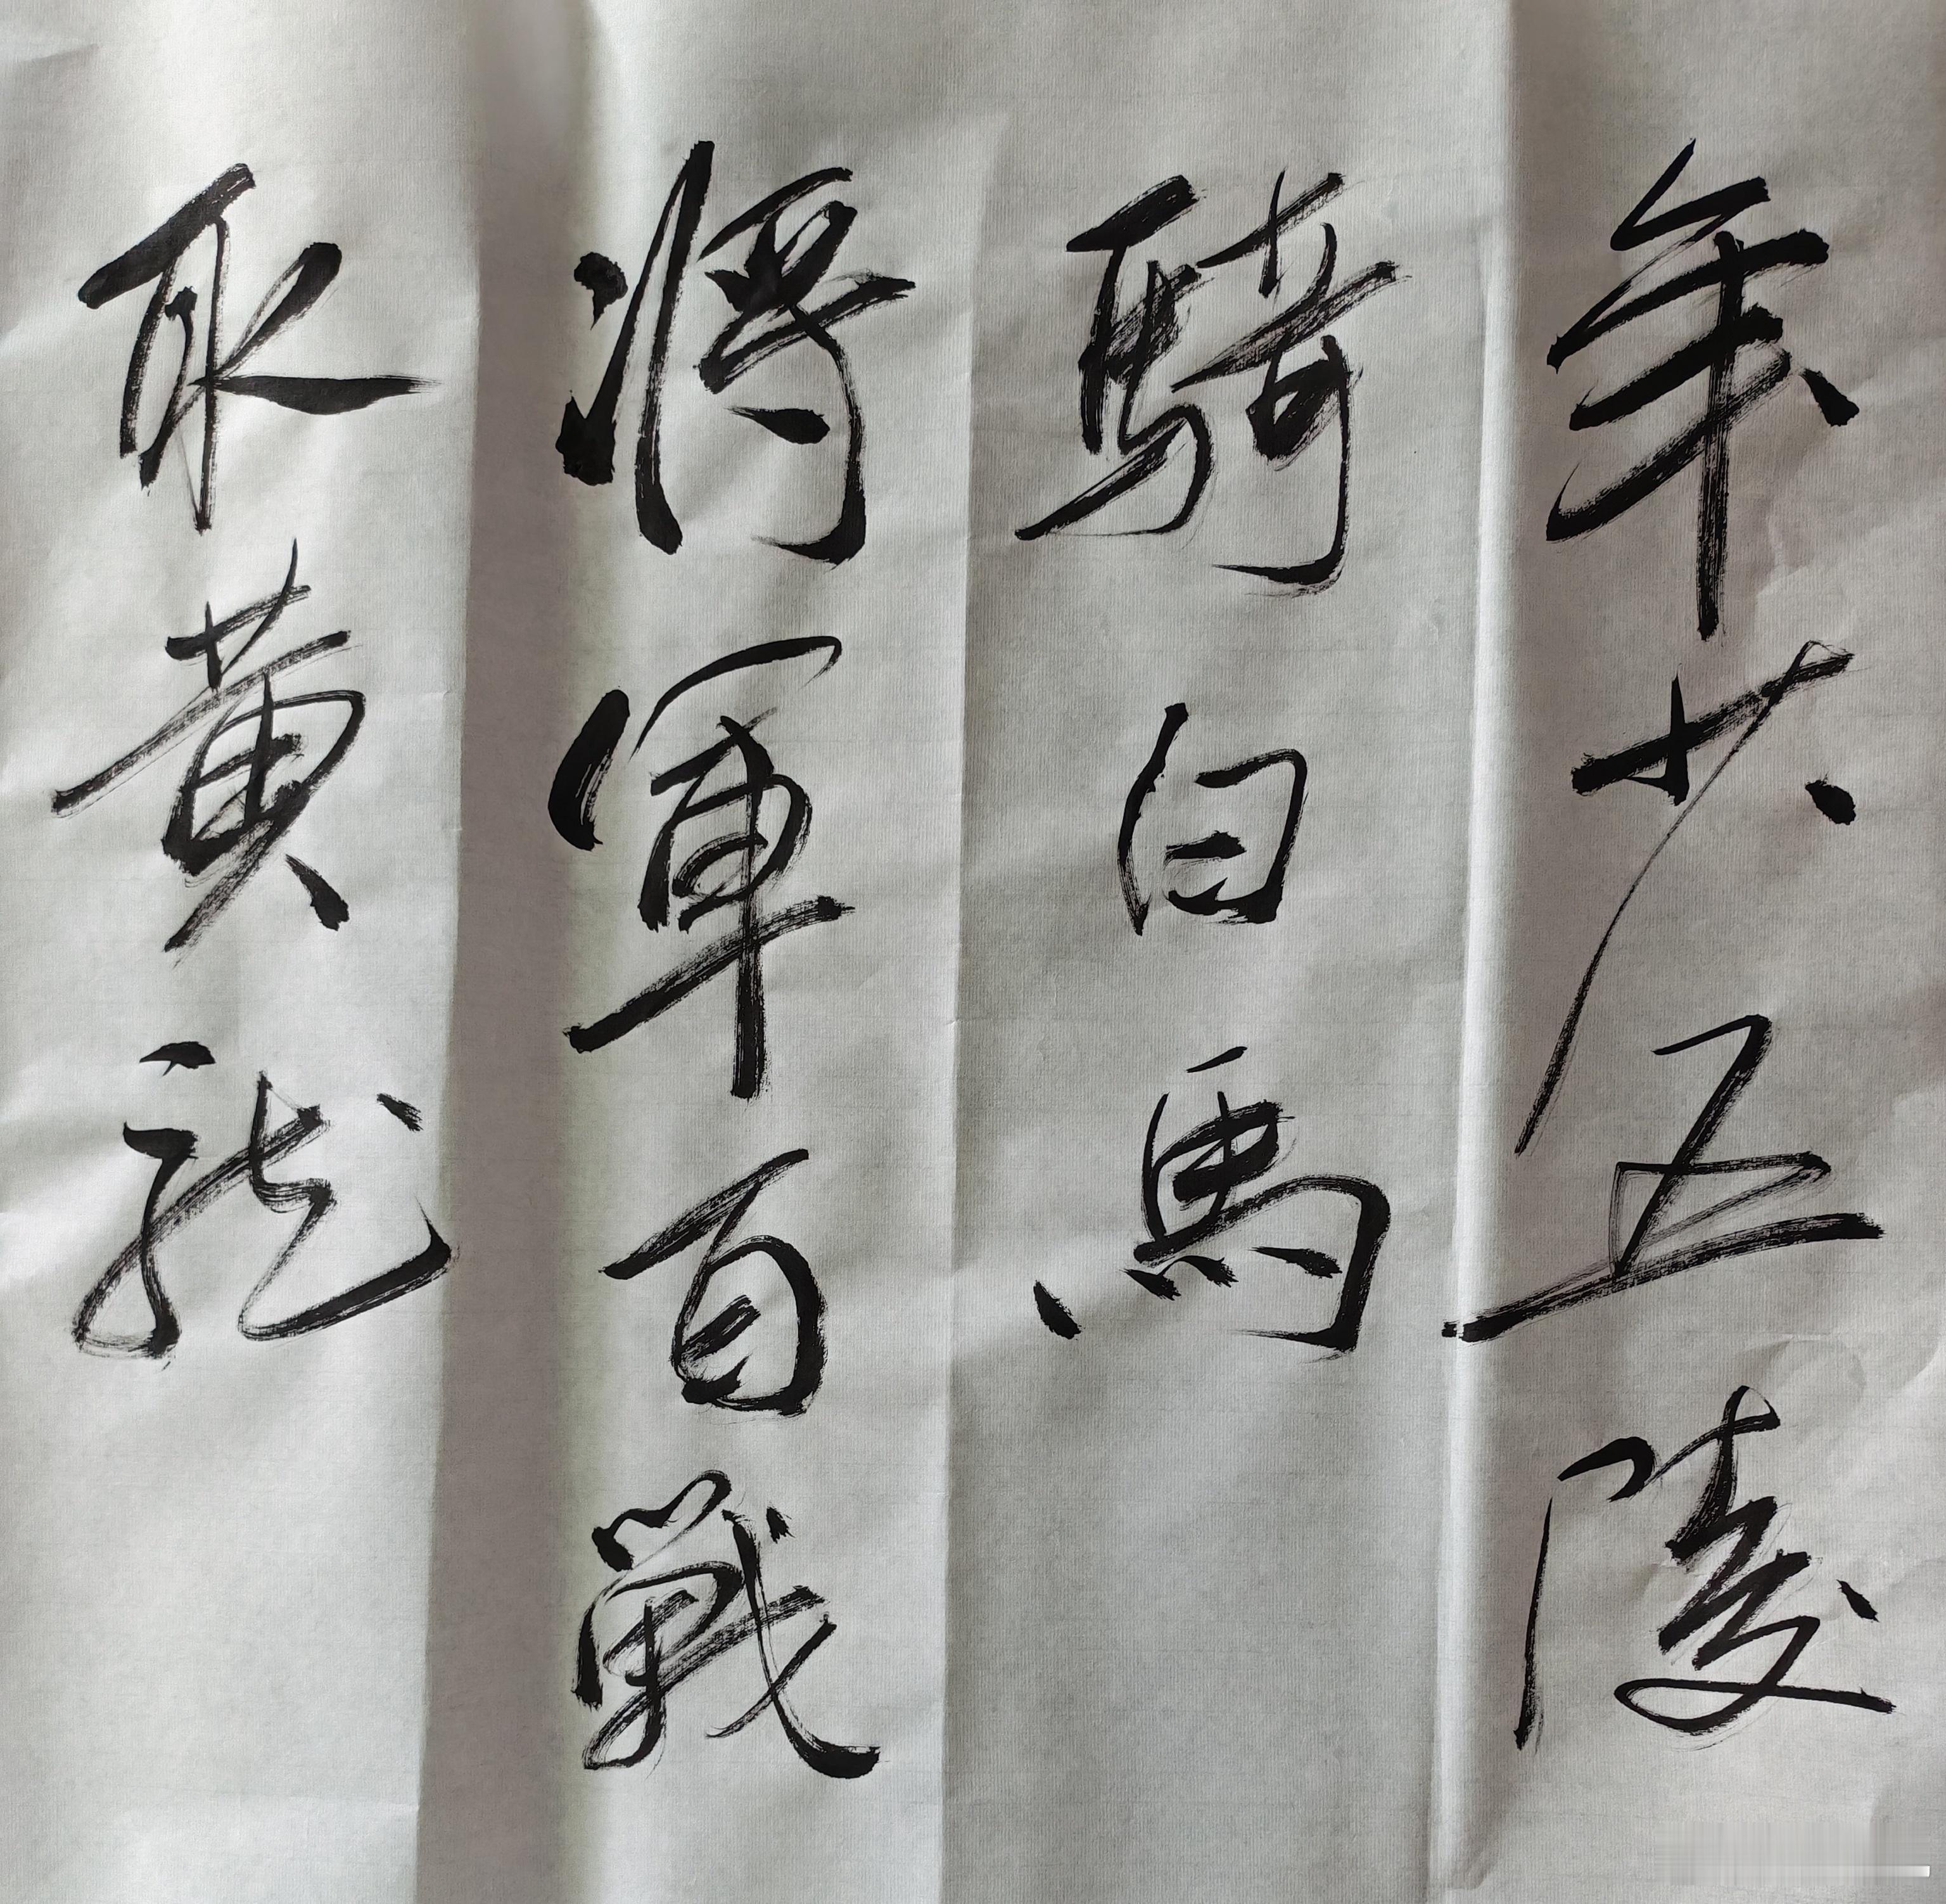 年少五陵
騎白馬
將軍百戰
取黃龍